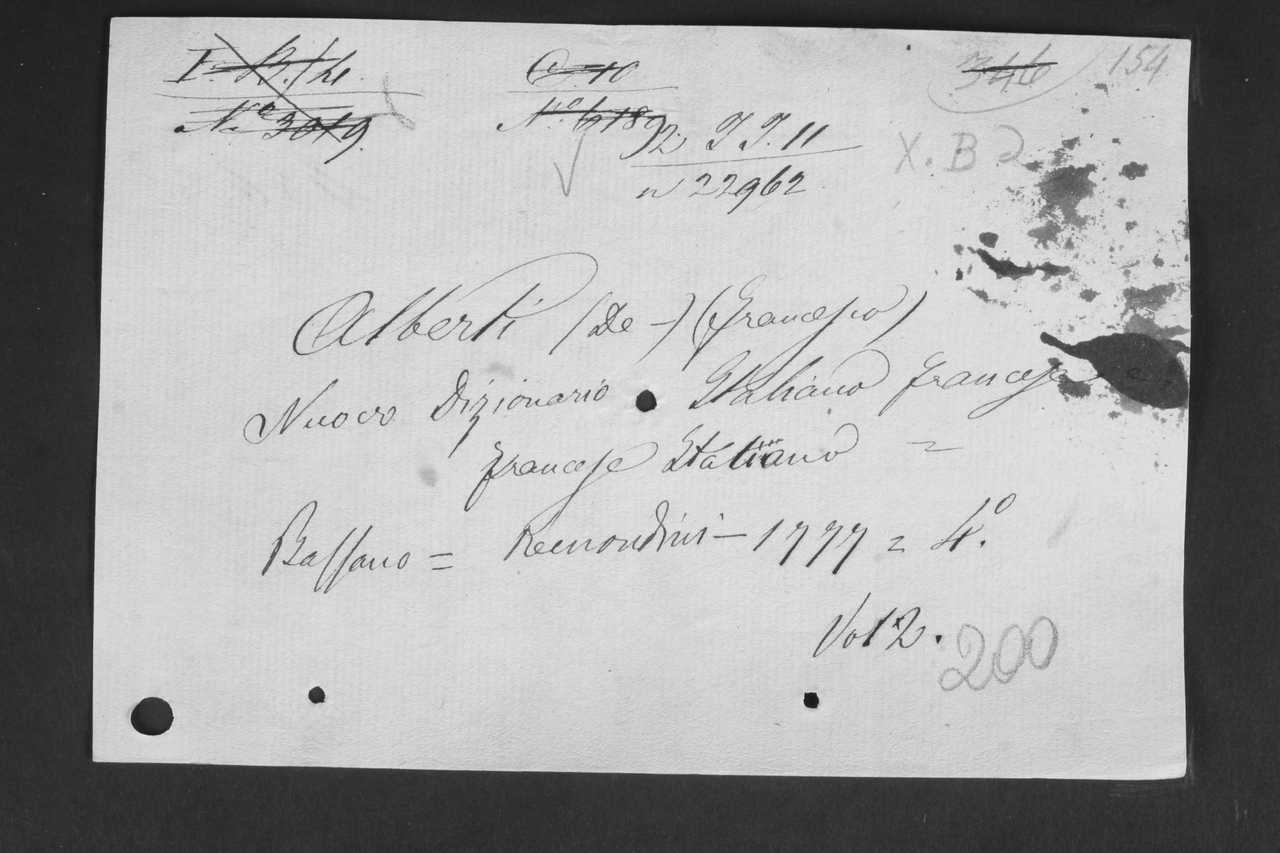 I. B. 14 C 10 346 154
No 3019 No 6189
92. TT. 11 X. B 2
n 22962
Alberti (De-) (Francesco)
Nuovo Dizionario Italiano francese e
francese Italiano =
Bassano = Remondini - 1777 = 4.º
Vol 2. 200